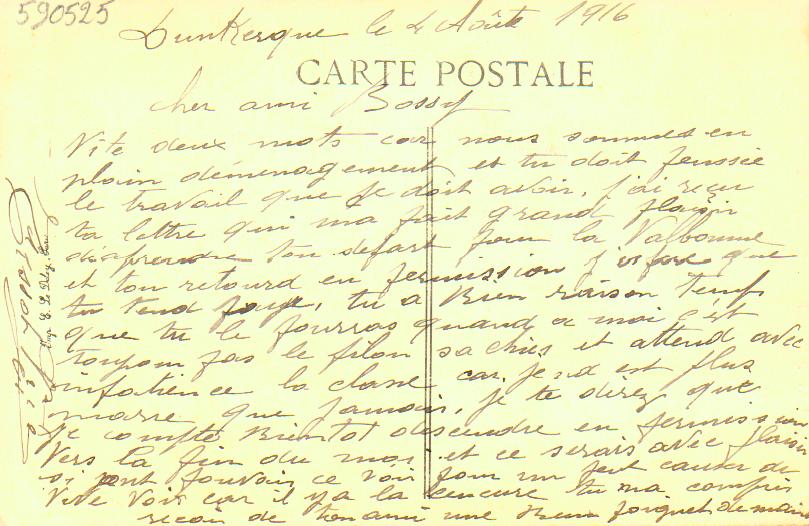 590525
Dunkerque le 4 Août 1916
CARTE POSTALE
cher ami Bossy
Vite deux mots car nous sommes en
plain démenagement et tu doit penssée
le travail que je doit avoir, j'ai reçu
ta lettre qui ma fait grand plaisir
daprendre ton depart pour la Valbonne
et ton retourd en permission j que
tu tend paye, tu a Bien raison temp
que tu le pourras quand a moi c'est
toujour pas le filon sa chies et attend avec
impatience la classe car jend est plus
marre que jamais, je te direz que
je compte Bientot descendre en permission
Vers la fin du moi et ce serais avec plaisir
si pouvoir ce voir pour un peut causer de
Vive Voix car il y a la cencure tu ma compris
reçois de ton ami une Bonne poignet de main
Imp.